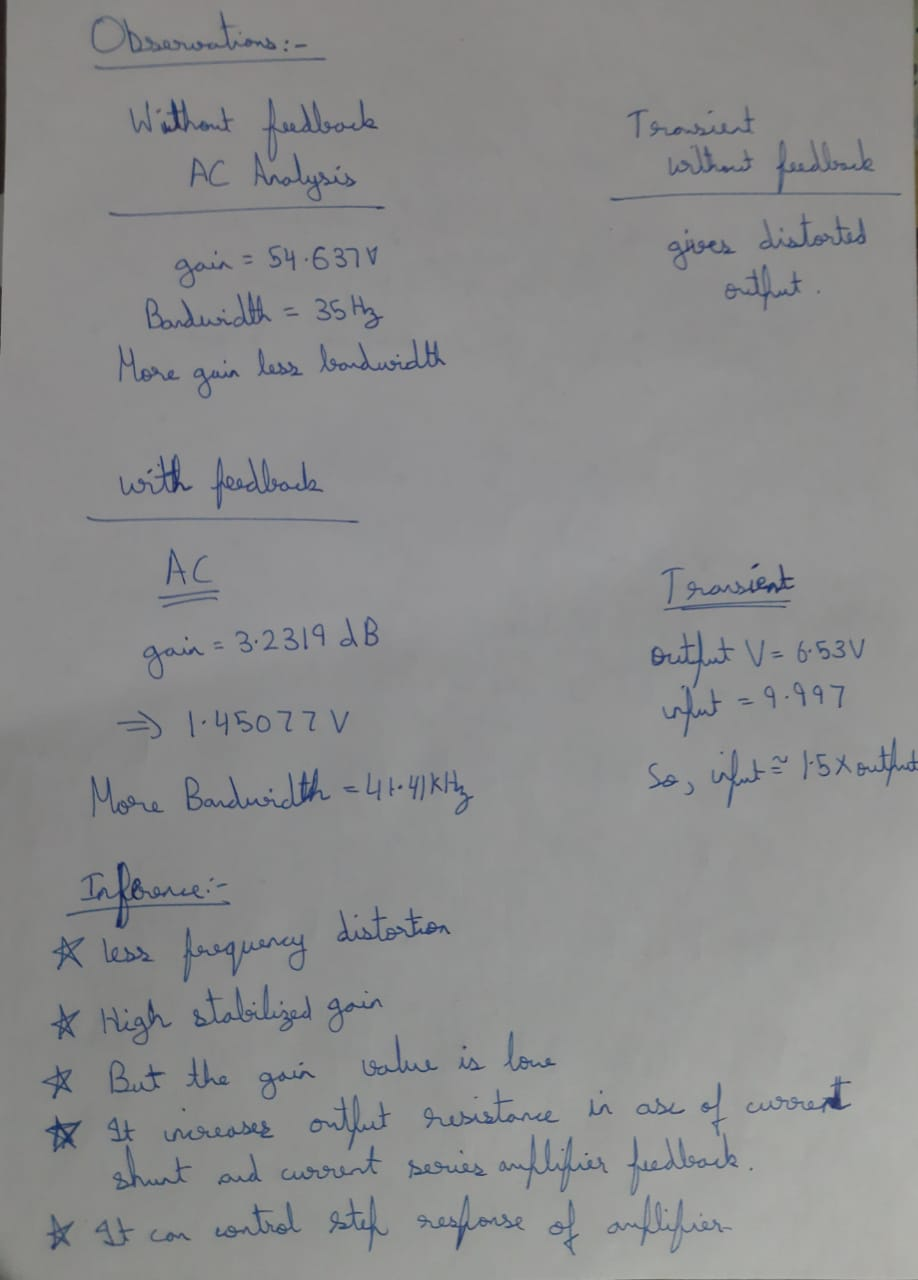 Observations:-
Without feedback
AC Analysis
gain = 54.637V
Bandwidth = 35Hz
More gain less bandwidth
Transient
without feedback
gives distorted
output.
with feedback
AC
gain = 3.2319 dB
⇒ 1.45077 V
More Bandwidth = 41.41KHz
Transient
output V = 6.53V
input = 9.997
So, input ≃ 1.5 X output
Inference:-
☆ less frequency distortion
☆ High stabilized gain
☆ But the gain value is low
☆ It increases output resistance in ase of current
shunt and current series amplifier feedback.
☆ It can control step response of amplifier